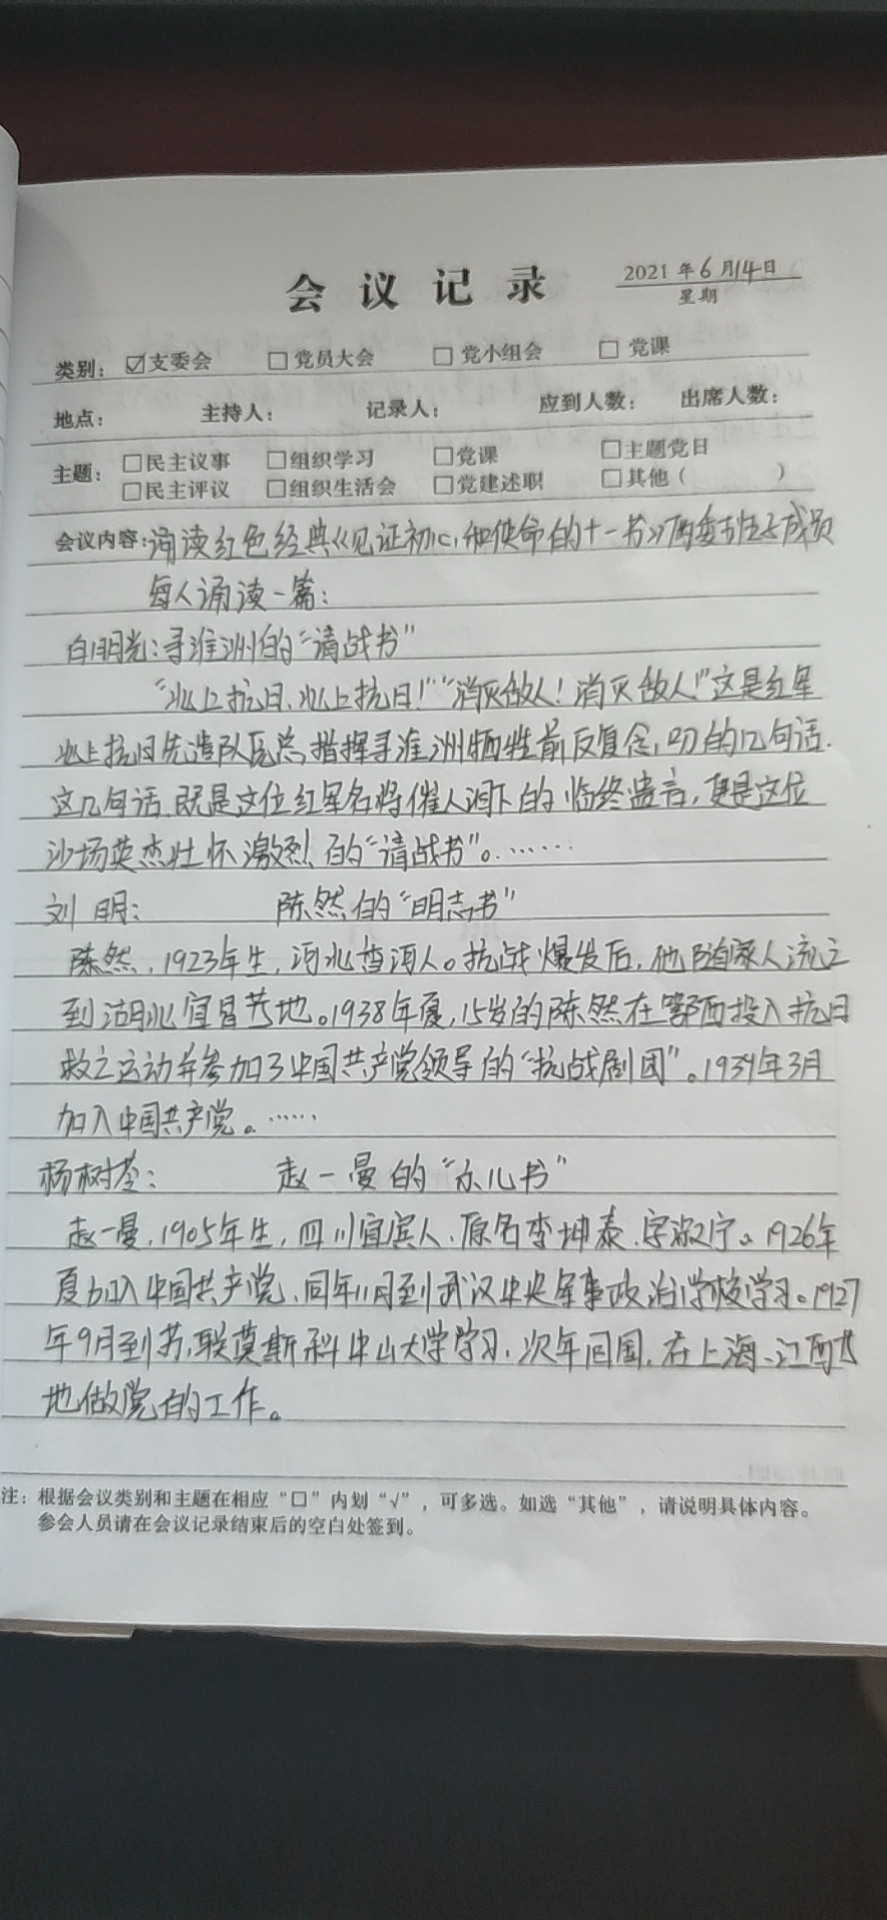 会议记录
2021年6月14日
星期
类别：☑支委会 □党员大会 □党小组会 □党课
地点： 主持人： 记录人： 应到人数： 出席人数：
主题：□民主议事 □组织学习 □党课 □主题党日
□民主评议 □组织生活会 □党建述职 □其他（ ）
会议内容：诵读红色经典《见证初心和使命的十一书》两委班子成员
每人诵读一篇：
白明光：寻淮洲的“请战书”
“北上抗日、北上抗日！”“消灭敌人！消灭敌人！”这是红军
北上抗日先遣队医总指挥寻淮洲牺牲前反复念叨的几句话.
这几句话既是这位红军名将催人泪下的临终遗言，更是这位
沙场英杰壮怀激烈的“请战书”。……
刘明： 陈然的“明志书”
陈然，1923年生，河北香河人。抗战爆发后，他随家人流亡
到湖北宜昌等地。1938年夏，15岁的陈然在鄂西投入抗日
救亡运动并参加了中国共产党领导的“抗战剧团”。1939年3月
加入中国共产党。……
杨树荃： 赵一曼的“示儿书”
赵一曼，1905年生，四川宜宾人，原名李坤泰，字淑宁。1926年
夏加入中国共产党，同年11月到武汉中央军事政治学校学习。1927
年9月到苏联莫斯科中山大学学习，次年回国，在上海、江西等
地做党的工作。
注：根据会议类别和主题在相应“□”内划“√”，可多选。如选“其他”，请说明具体内容。
参会人员请在会议记录结束后的空白处签到。